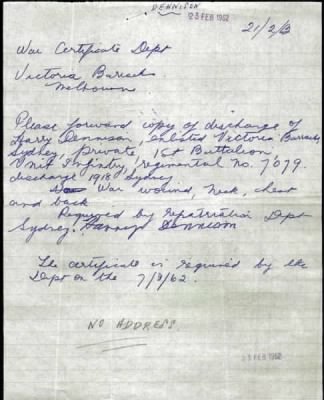 DENNISON
23 FEB 1962
21/2/3
War Certificate Dept
Victoria Barrack
Melbourn
Please forward copy of discharge of
Harry Dennison, enlisted Victoria Barracks,
Sydney, Private, 1st Battalion
Unit, Infantry, regimental no. 7079.
discharge 1918 Sydney
War wound, Neck, chest
and back
Required by Repatriation Dept
Sydney. Dennison
The certificate is required by the
Dept on the 7/3/62.
NO ADDRESS
23 FEB 1962